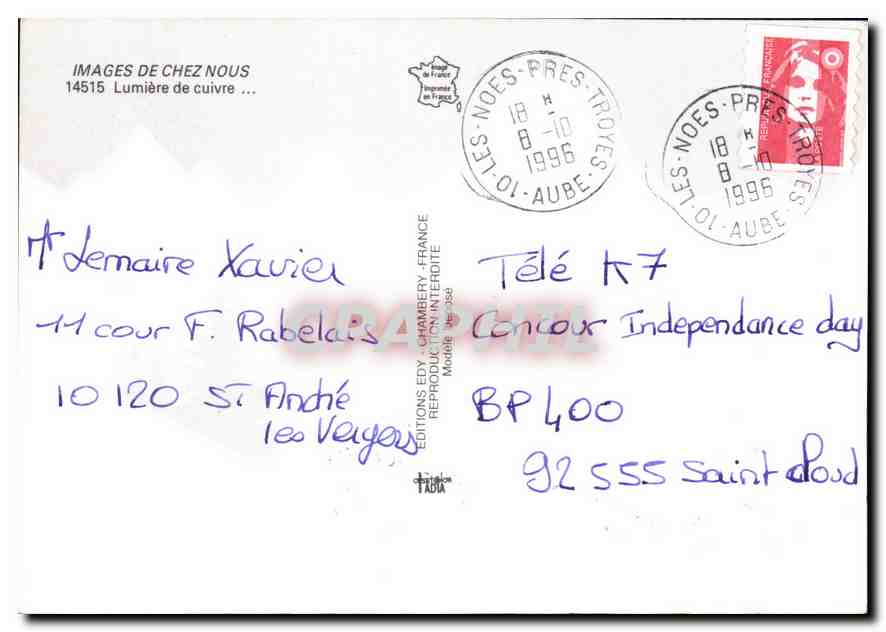 IMAGES DE CHEZ NOUS
14515 Lumière de cuivre ...
Image
de France
Imprimée
en France
10-LES-NOES-PRES-TROYES-AUBE-
18 H
8 -10
1996
10-LES-NOES-PRES-TROYES-AUBE-
18 H
8 -10
1996
REPUBLIQUE FRANÇAISE
POSTE
Mr Lemaire Xavier
11 cour F. Rabelais
10120 ST André
les Vergers
EDITIONS EDY - CHAMBERY - FRANCE
REPRODUCTION INTERDITE
Modèle déposé
Télé K7
Concour Independance day
BP 400
92 555 Saint Cloud
GRAPHIL